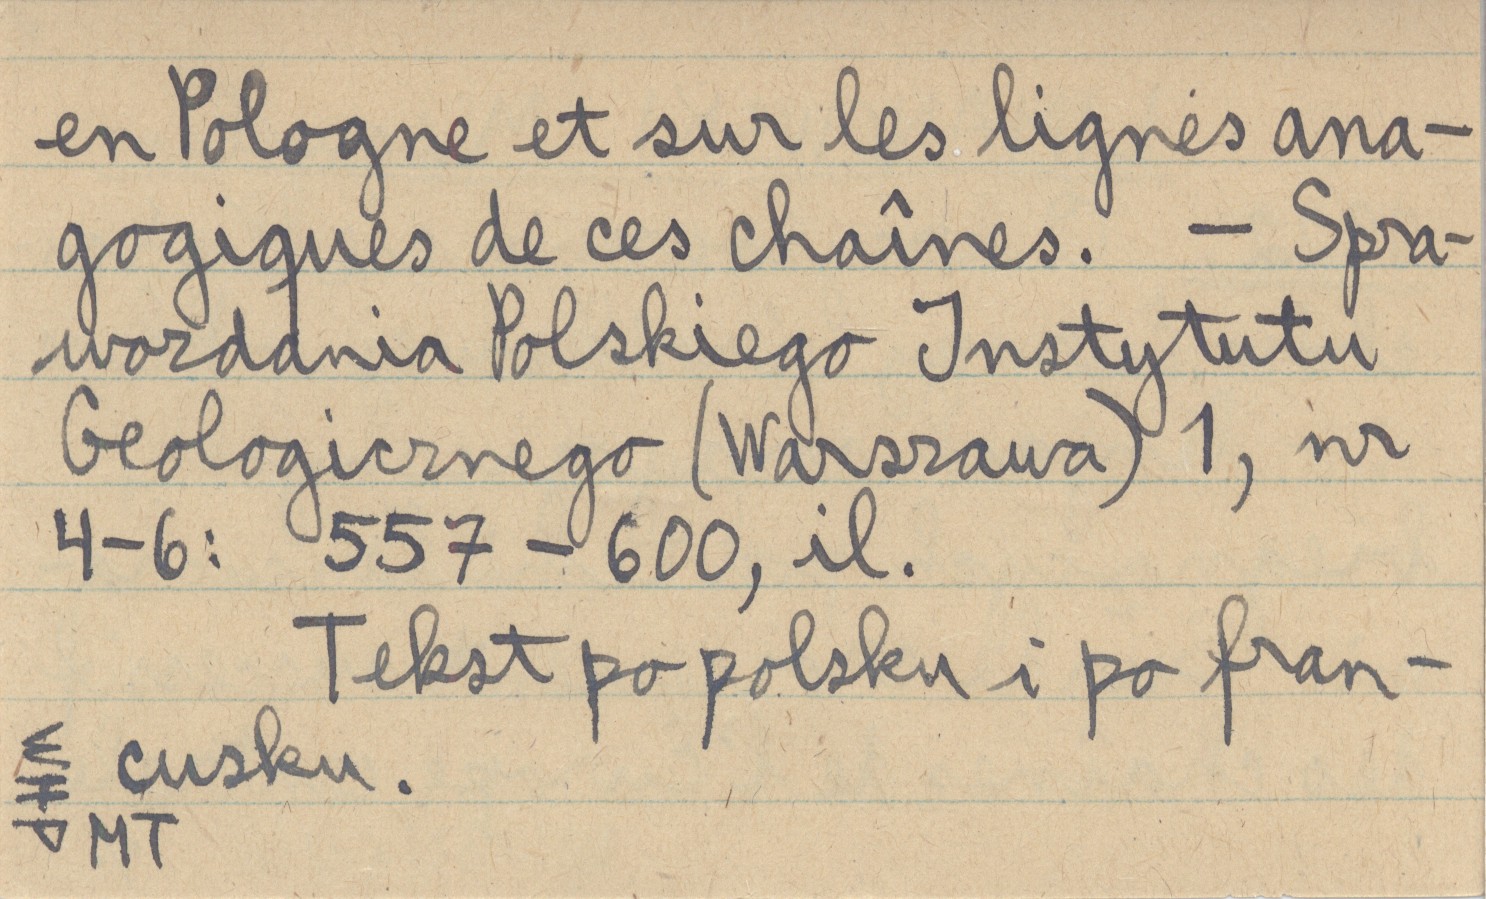 en Pologne et sur les lignes ana-
gogiques de ces chaînes. - Spra-
wozdania Polskiego Instytutu
Geologicznego (Warszawa) 1, nr
4-6: 557 - 600, il.
Tekst po polsku i po fran-
cusku.
MT